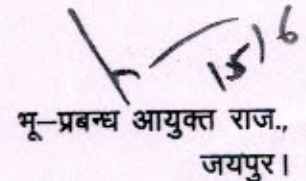 15/6
भू–प्रबन्ध आयुक्त राज.,
जयपुर।